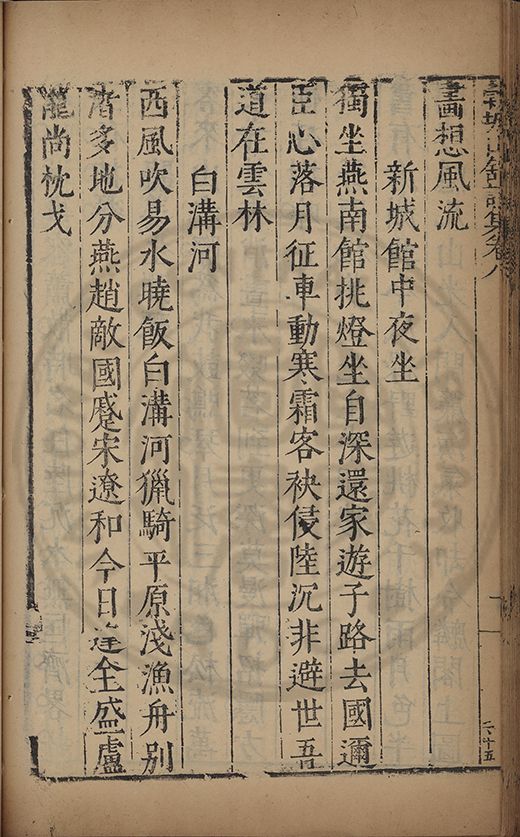 集卷八
二十五
畫想風流
新城館中夜坐
獨坐燕南館挑燈坐自深還家遊子路去國邇
臣心落月征車動寒霜客袂侵陸沉非避世吾
道在雲林
白溝河
西風吹易水曉飯白溝河獵騎平原淺漁舟別
渚多地分燕趙敵國蹙宋遼和今日逢全盛盧
龍尚枕戈